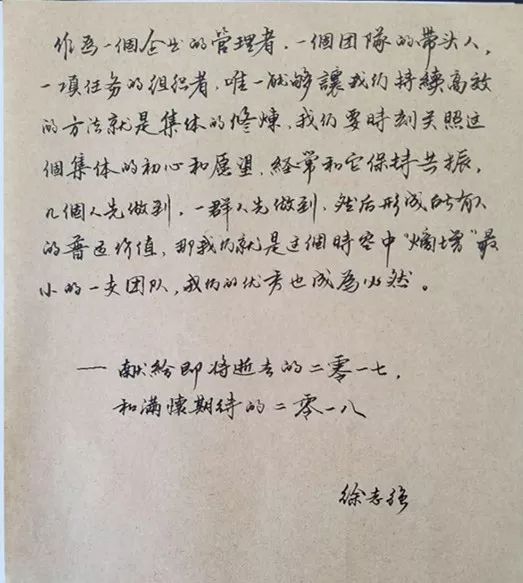 作为一個企业的管理者，一個团隊的带头人，
一項任务的组织者，唯一能够讓我们持续高效
的方法就是集体的修煉，我们要時刻关照这
個集体的初心和愿望，経常和它保持共振，
几個人先做到，一群人先做到，然后形成所有人
的普适价值，那我们就是这個時空中“熵增”最
小的一支团队，我们的优秀也成為必然。
——献给即将逝去的二零一七，
和满懷期待的二零一八
徐志强